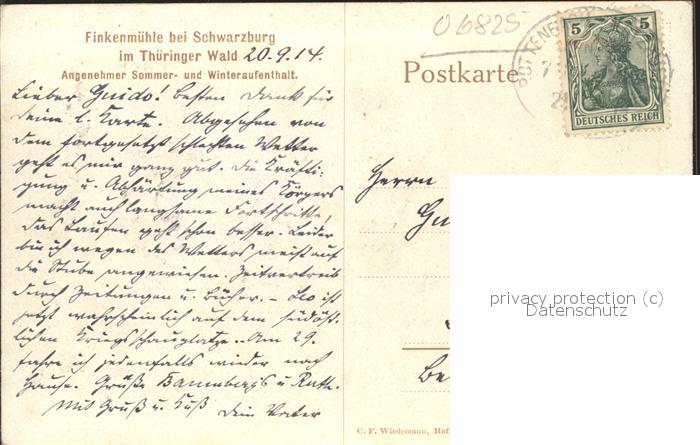 Finkenmühle bei Schwarzburg
im Thüringer Wald 20.9.14.
Angenehmer Sommer- und Winteraufenthalt.
Lieber Guido! Besten Dank für
deine l. Karte. Abgesehen von
dem fortgesetzt schlechten Wetter
geht es mir ganz gut. Die Kräfti-
gung u. Abhärtung meines Körpers
macht auch langsame Fortschritte,
das Laufen geht schon besser. Leider
bin ich wegen des Wetters meist auf
die Stube angewiesen. Zeitvertreib
durch Zeitungen u. Bücher. – Leo ist
jetzt wahrscheinlich auf dem südöst-
lichen Kriegsschauplatze. Am 29.
fahre ich jedenfalls wieder nach
Hause. Grüße Bamberg's u. Ruth.
Mit Gruß u. Kuß Dein Vater
06825
Postkarte
5 5
DEUTSCHES REICH
Herrn
Gu
Be
privacy protection (c)
Datenschutz
C. F. Wiedemann, Hof